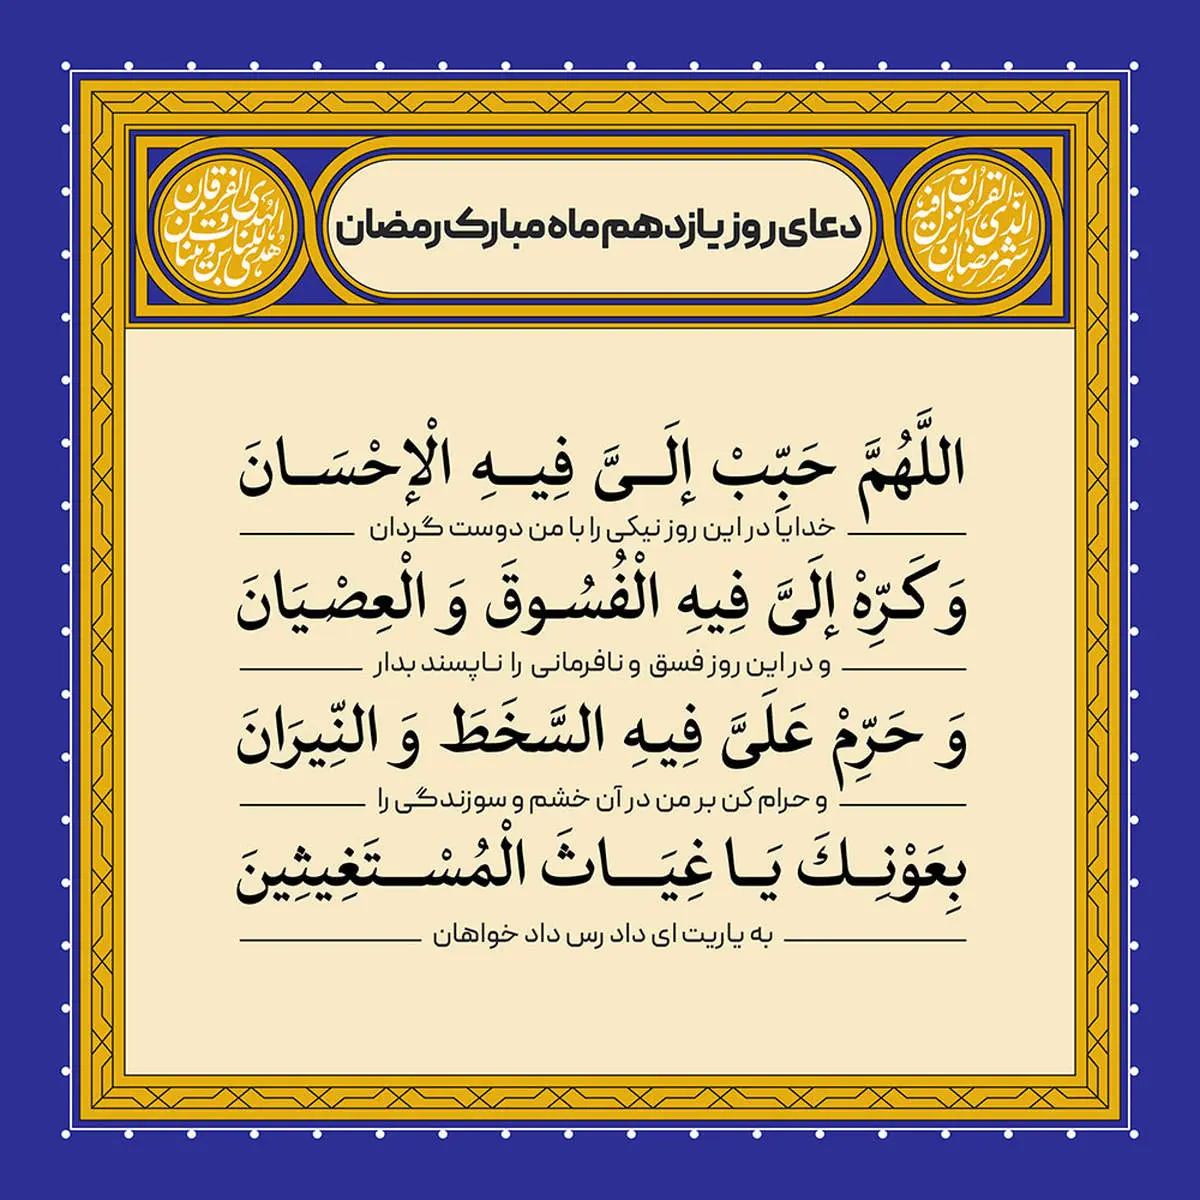 دعای روز یازدهم ماه مبارک رمضان
شهر رمضان الذی انزل فیه القرآن
هدی للناس و بینات من الهدی و الفرقان
اللَّهُمَّ حَبِّبْ إِلَـیَّ فِیـهِ الْإِحْسَـانَ
خدایا در این روز نیکی را با من دوست گردان
وَ کَـرِّهْ إِلَیَّ فِیهِ الْفُسُـوقَ وَ الْعِصْیَانَ
و در این روز فسق و نافرمانی را ناپسند بدار
وَ حَرِّمْ عَلَیَّ فِیـهِ السَّخَطَ وَ النِّیرَانَ
و حرام کن بر من در آن خشم و سوزندگی را
بِعَوْنِـكَ یَـا غِیَـاثَ الْمُسْـتَغِیثِینَ
به یاریت ای داد رس داد خواهان